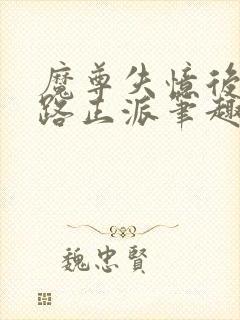 魔尊失憶後
路正派筆趣
魏忠賢